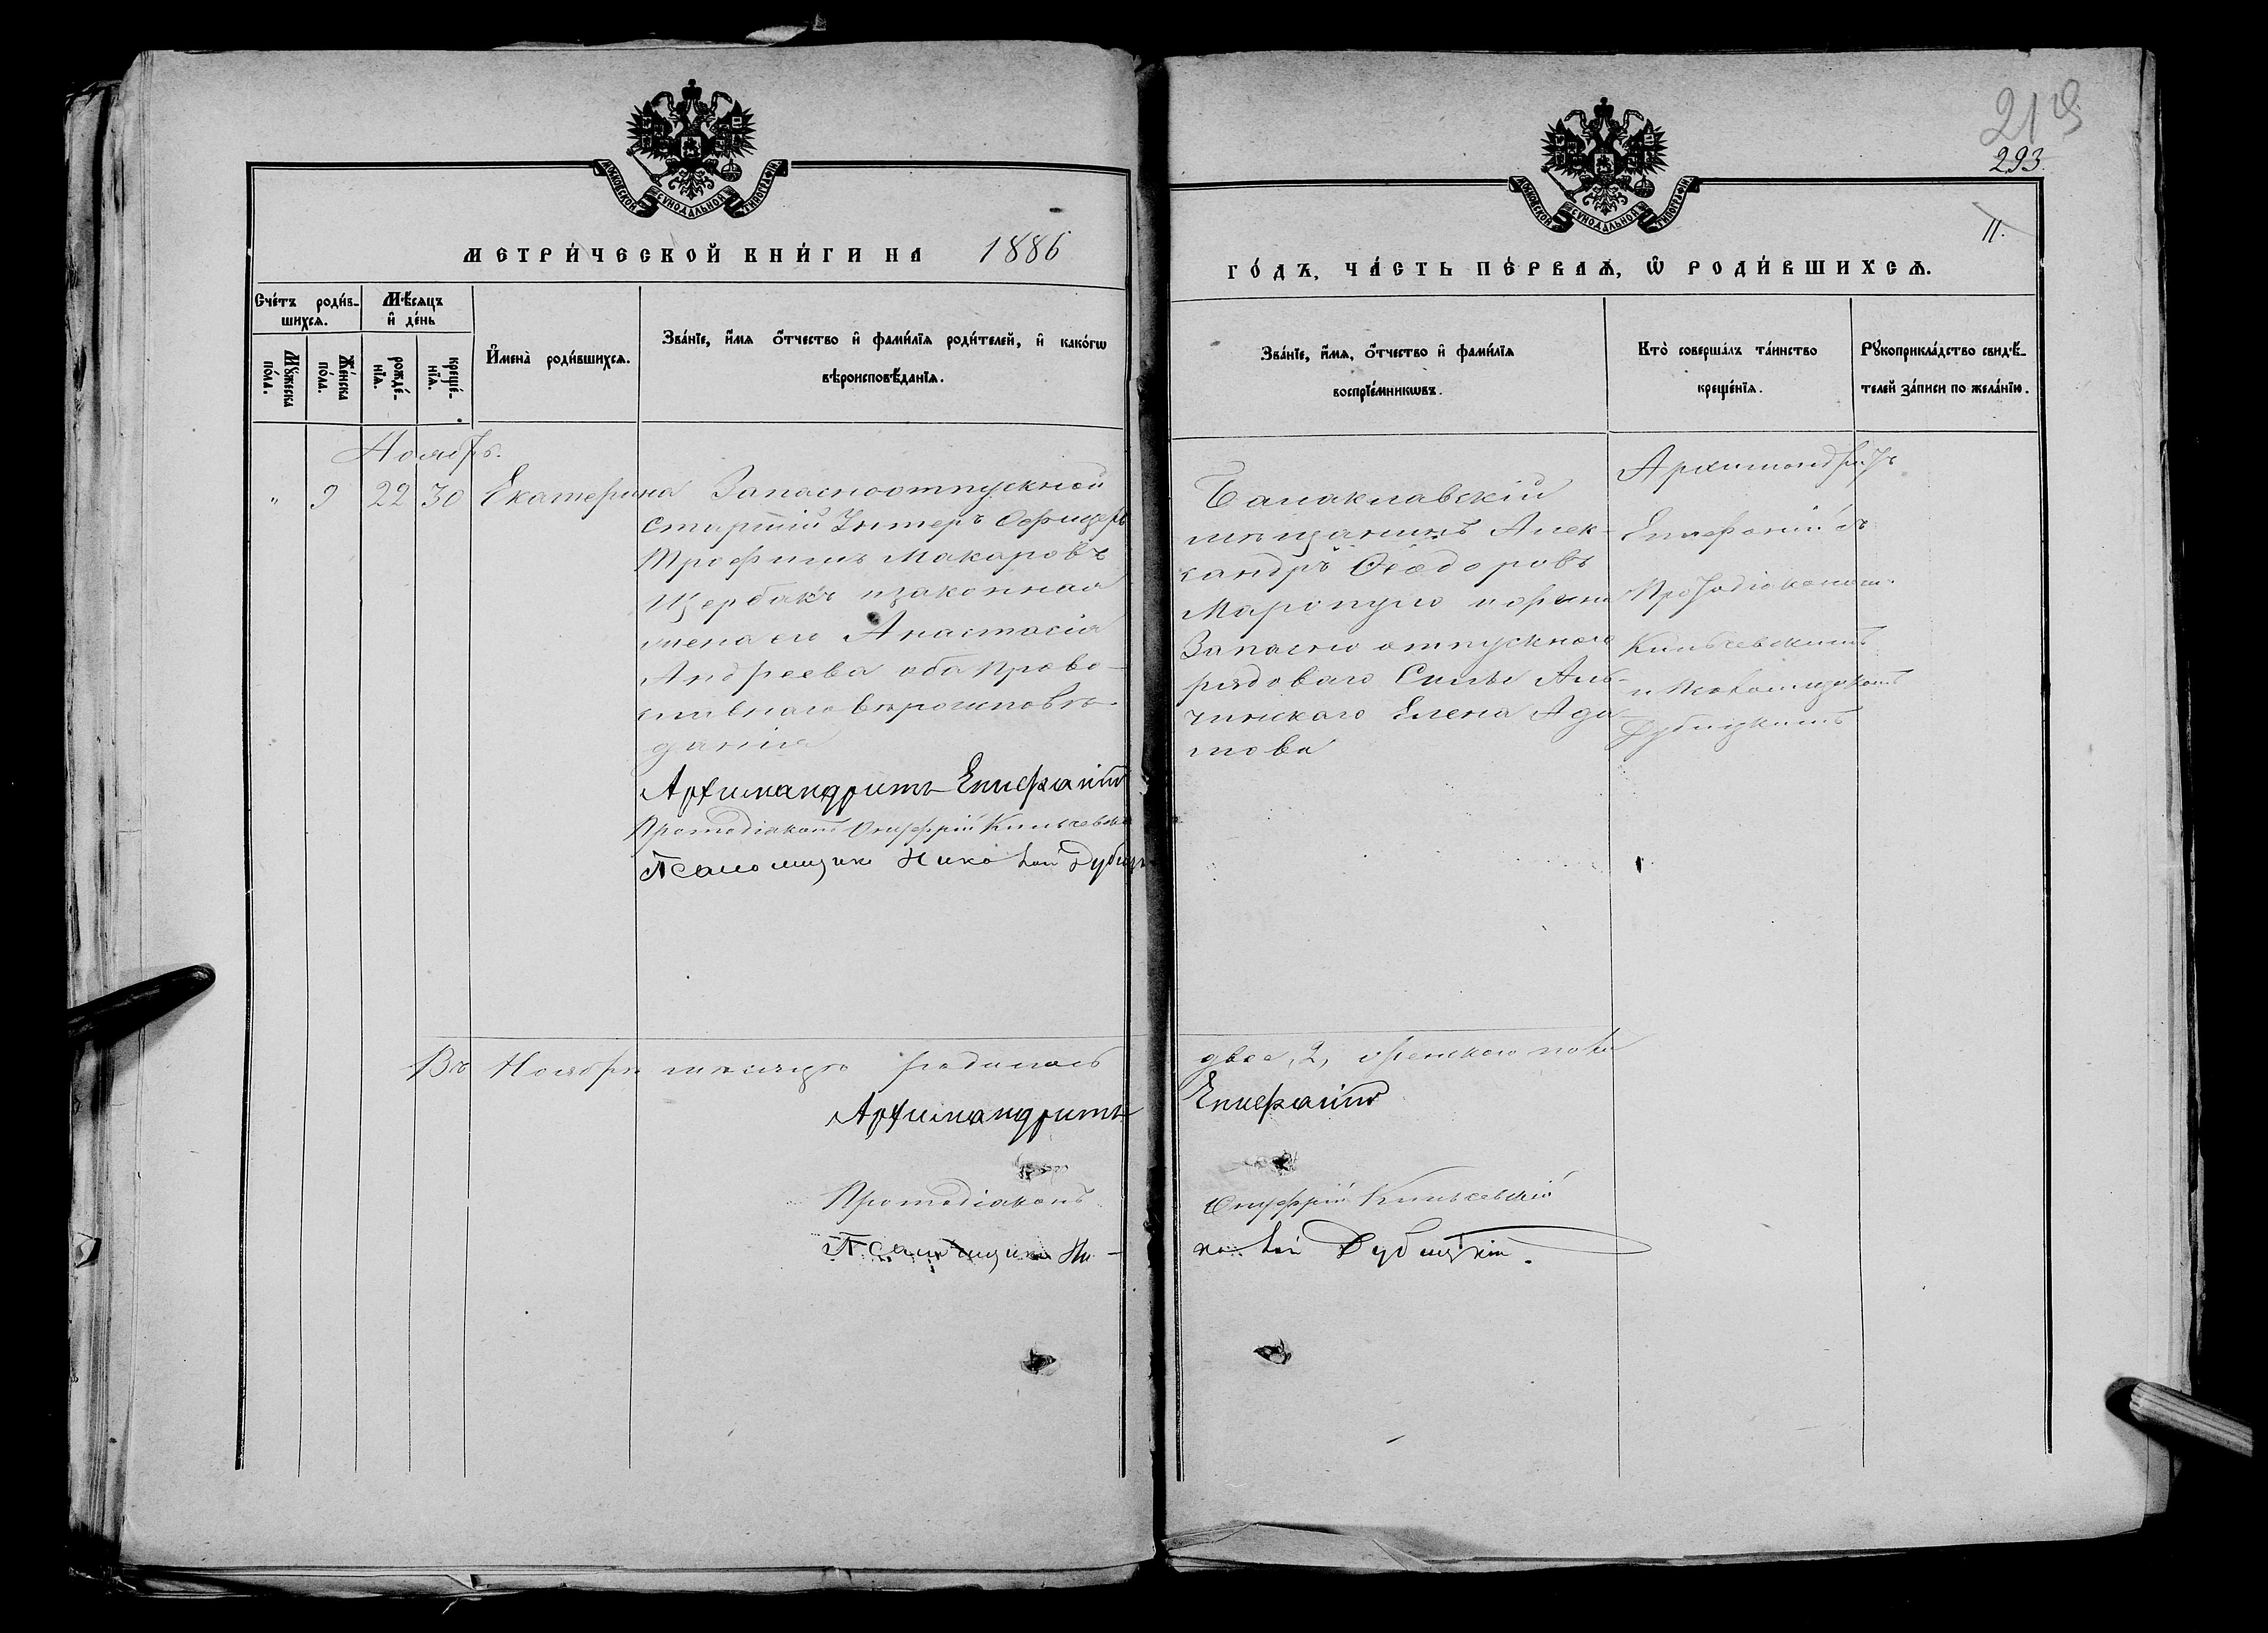 219
293.
11.
МОСКОВСКОЙ СѴНОДАЛЬНОЙ ТИПОГРАФІИ
МОСКОВСКОЙ СѴНОДАЛЬНОЙ ТИПОГРАФІИ
МЕТРИ́ЧЕСКОЙ КНИ́ГИ НА 1886
ГО́ДЪ, ЧА́СТЬ ПЕ́РВАѦ, Ѡ҆ РОДИ́ВШИХСѦ.
Сче́тъ роди́в-
шихсѧ.
Мѣ́сѧцъ
и҆ де́нь
Мꙋ́жеска
по́ла.
Же́нска
по́ла.
рожде́-
нїѧ.
креще́-
нїѧ.
И҆мена̀ роди́вшихсѧ.
Зва́нїе, и҆́мѧ ѻ҆́тчество и҆ фами́лїѧ роди́телей, и҆ како́гѡ
вѣроисповѣ́данїѧ.
Зва́нїе, и҆́мѧ, ѻ҆́тчество и҆ фами́лїѧ
воспрїе́мникѡвъ.
Кто̀ соверша́лъ та́инство
креще́нїѧ.
Рꙋкоприкла́дство свидѣ́-
телей за́писи по жела́нїю.
Ноябрь.
" 9 22 30 Екатерина
Запасноотпускной
Старшій Унтеръ Офицеръ
Трофимъ Макаровъ
Щербакъ и законная
жена его Анастасія
Андреева оба право-
славнаго вѣроисповѣ-
данія
Архимандритъ Епифаній
Протодіаконъ Онуфрій
Псаломщикъ Николай Дубицк
Балаклавскій
мѣщанинъ Алек-
сандръ Ѳеодоровъ
и жена
Запасно отпускного
рядоваго Силы Аль-
чинскаго Елена Ада-
мова
Архимандритъ
Епифаній съ
Протодіакономъ
и Псаломщикомъ
Дубицкимъ
Въ Ноябрѣ мѣсяцѣ родилось
двое, 2, женскаго пола
Архимандритъ Епифаній
Протодіаконъ Онуфрій
Псаломщикъ Ни-
колай Дубицкій.